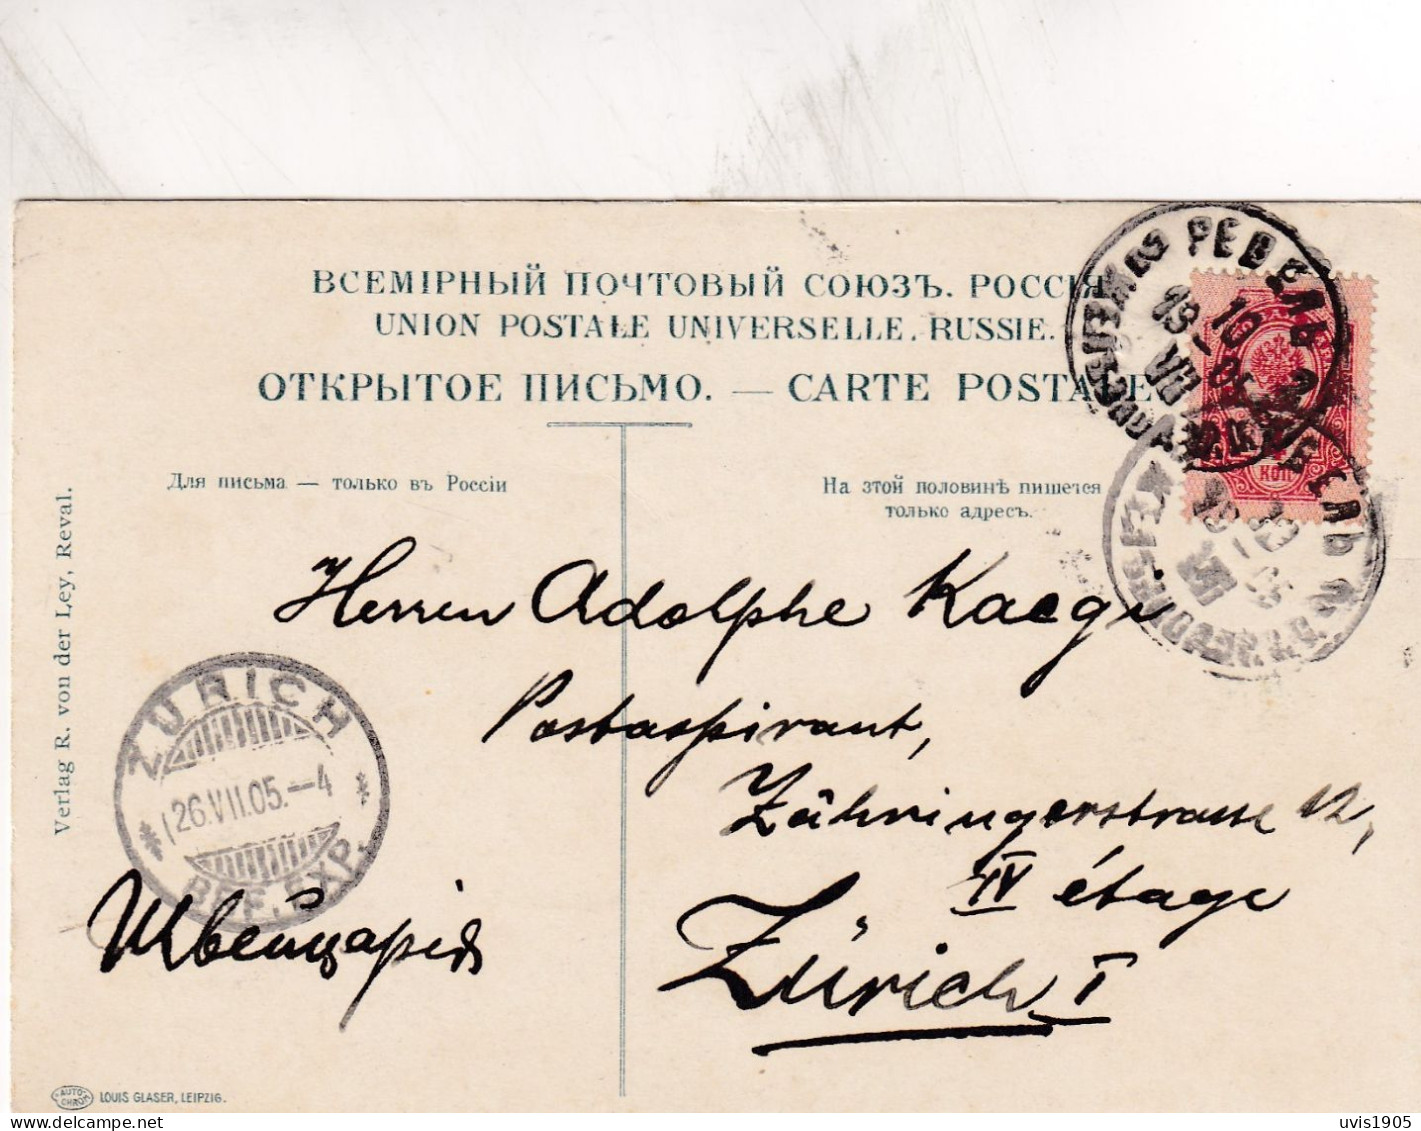 ВСЕМІРНЫЙ ПОЧТОВЫЙ СОЮЗЪ. РОССІЯ
UNION POSTALE UNIVERSELLE. RUSSIE.
ОТКРЫТОЕ ПИСЬМО. — CARTE POSTALE
Для письма — только въ Россіи
На этой половинѣ пишется
только адресъ.
РЕВЕЛЬ
19 VII
КОП
Verlag R. von der Ley, Reval.
Herren Adolphe Kaegi
Postaspirant,
Zähringerstrasse 12,
IV étage
Zürich I
ZÜRICH
26.VII.05.—4
BRF. EXP.
Швейцарія
AUTO-CHROM LOUIS GLASER, LEIPZIG.
delcampe.net
uvis1905